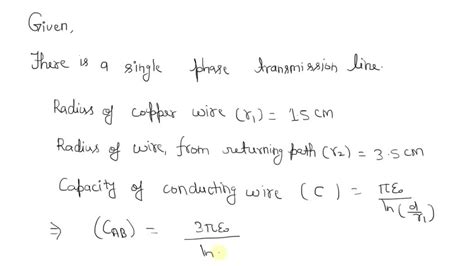 Given,
There is a single phase transmission line.
Radius of copper wire (r₁) = 15 cm
Radius of wire, from returning path (r₂) = 3.5 cm
Capacity of conducting wire (C) = πε₀ / ln(d/r₁)
⇒ (C_AB) = 2πε₀ / ln